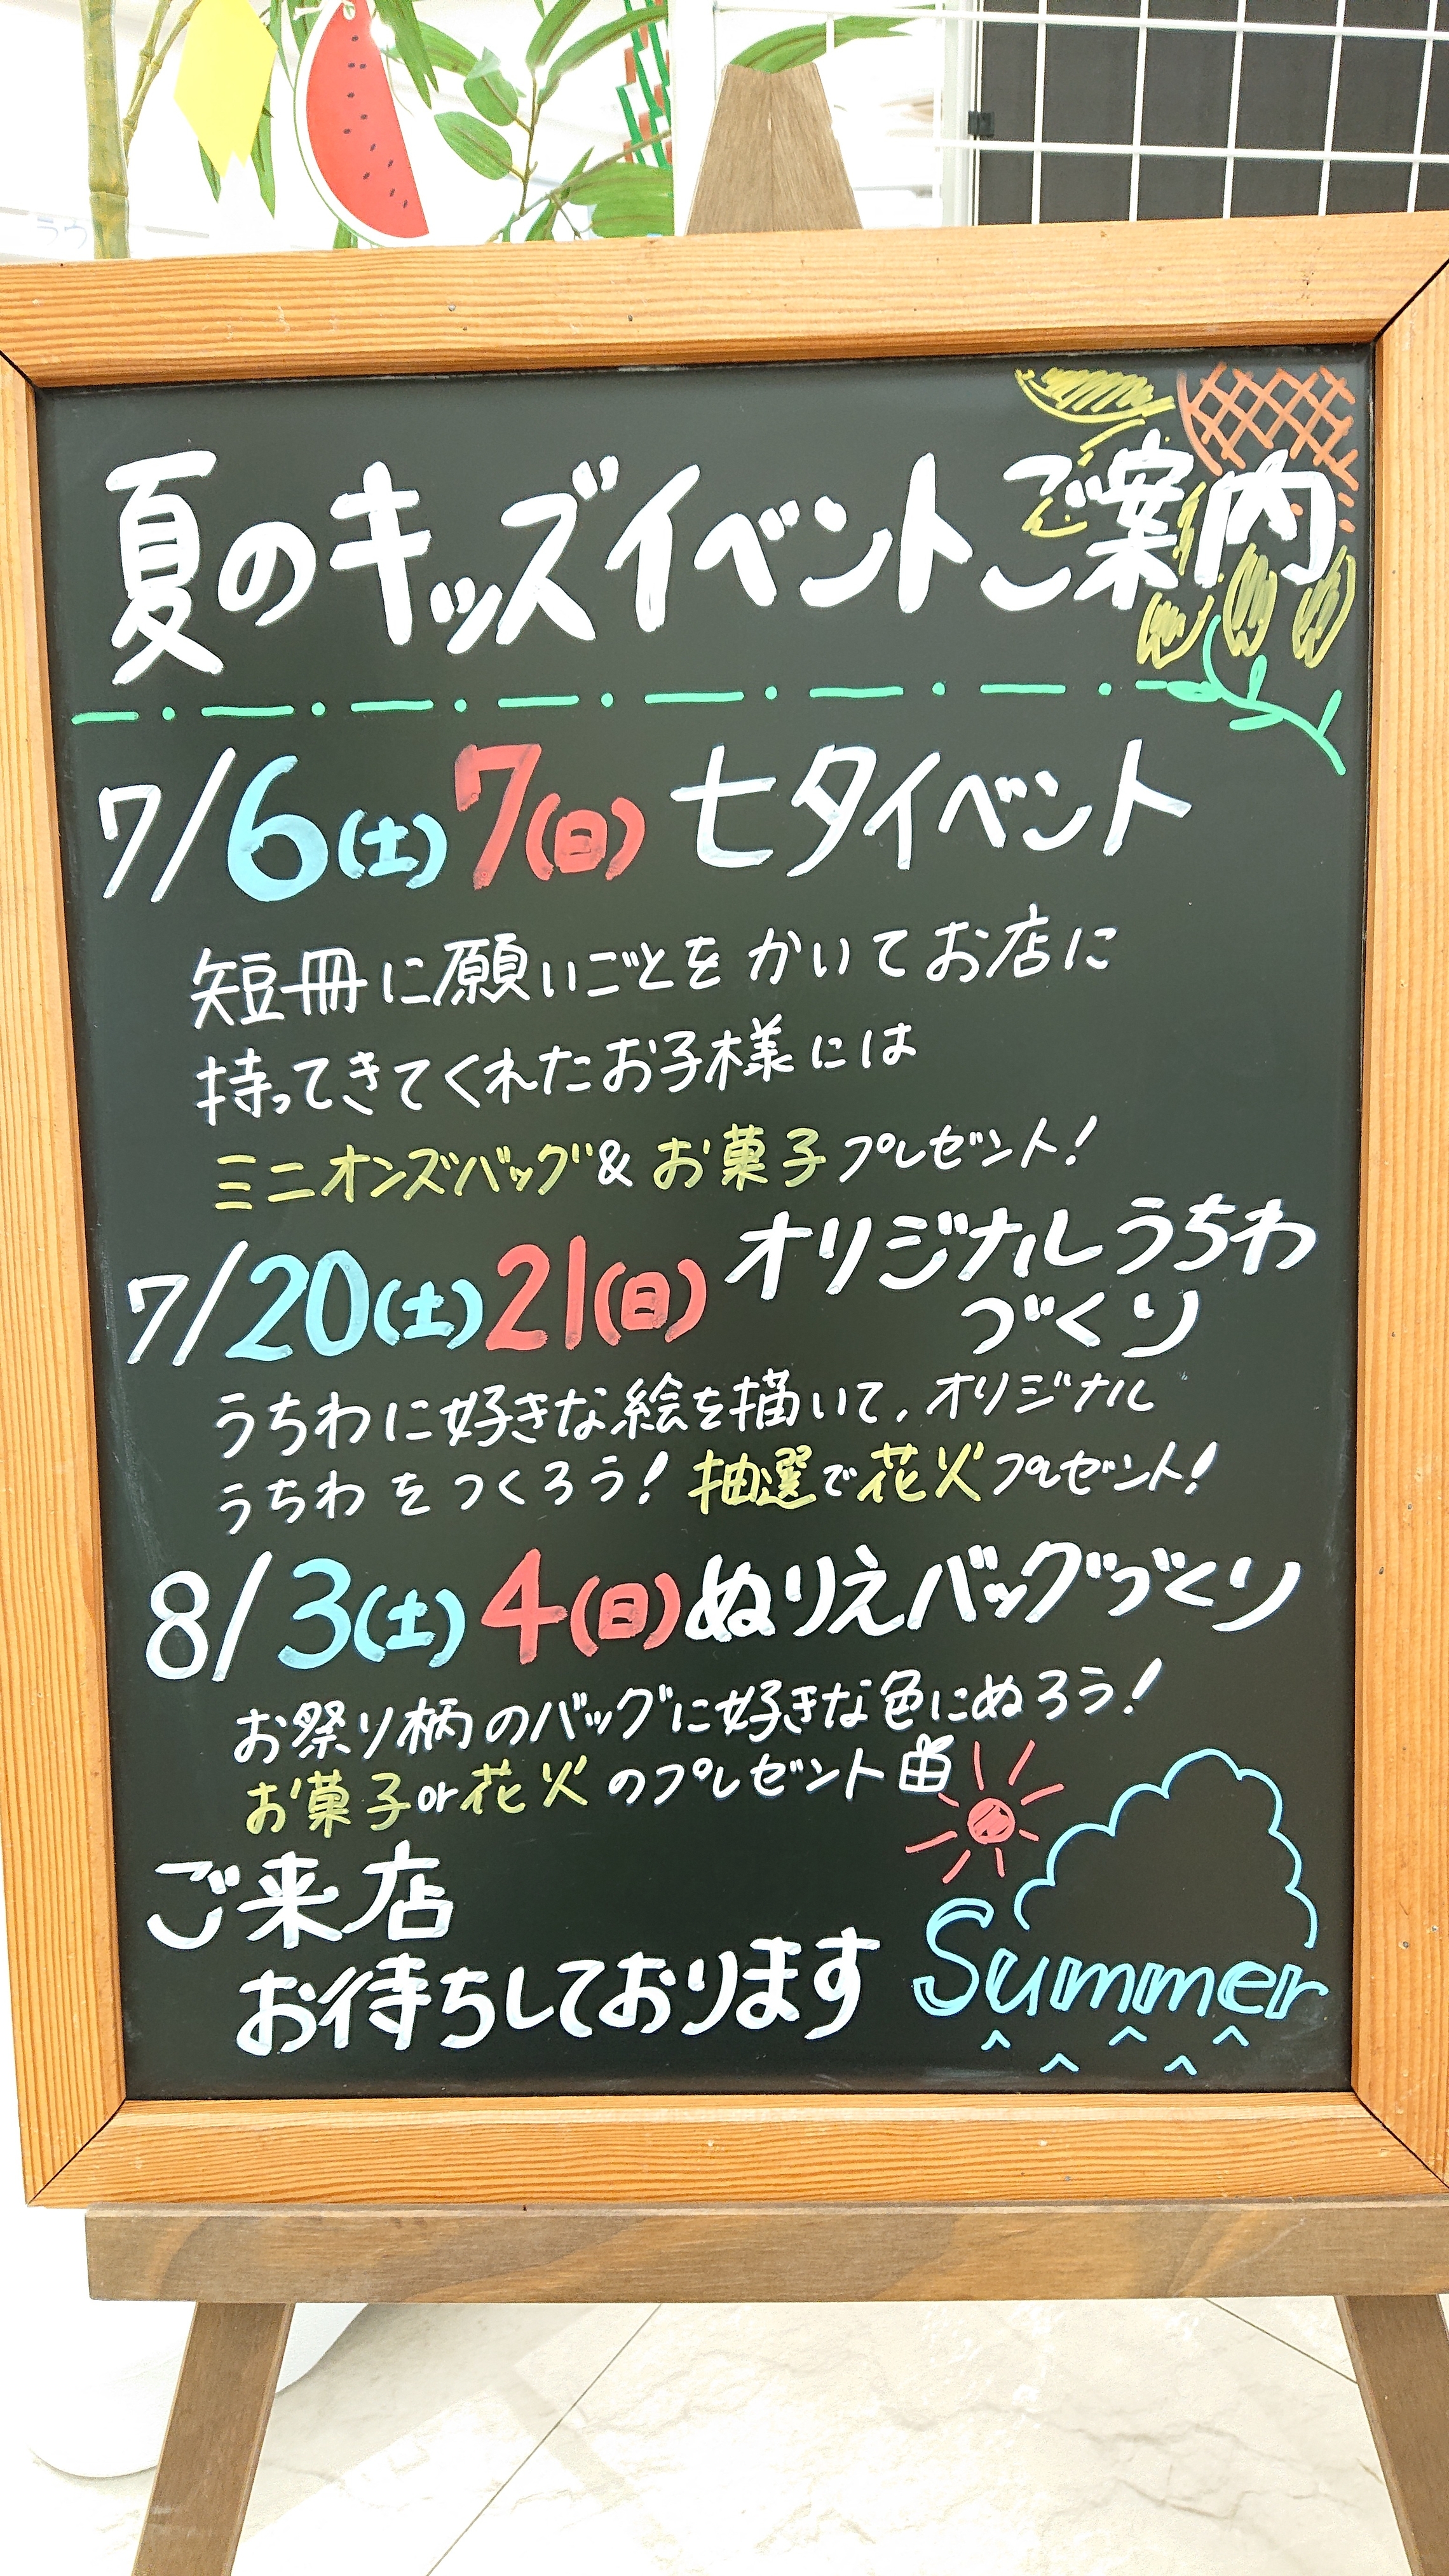 夏のキッズイベントご案内
7/6(土)7(日) 七夕イベント
短冊に願いごとをかいてお店に
持ってきてくれたお子様には
ミニオンズバッグ&お菓子プレゼント!
7/20(土)21(日) オリジナルうちわ
づくり
うちわに好きな絵を描いて、オリジナル
うちわをつくろう!抽選で花火プレゼント!
8/3(土)4(日)ぬりえバッグづくり
お祭り柄のバッグに好きな色にぬろう!
お菓子or花火のプレゼント
ご来店
お待ちしております
Summer